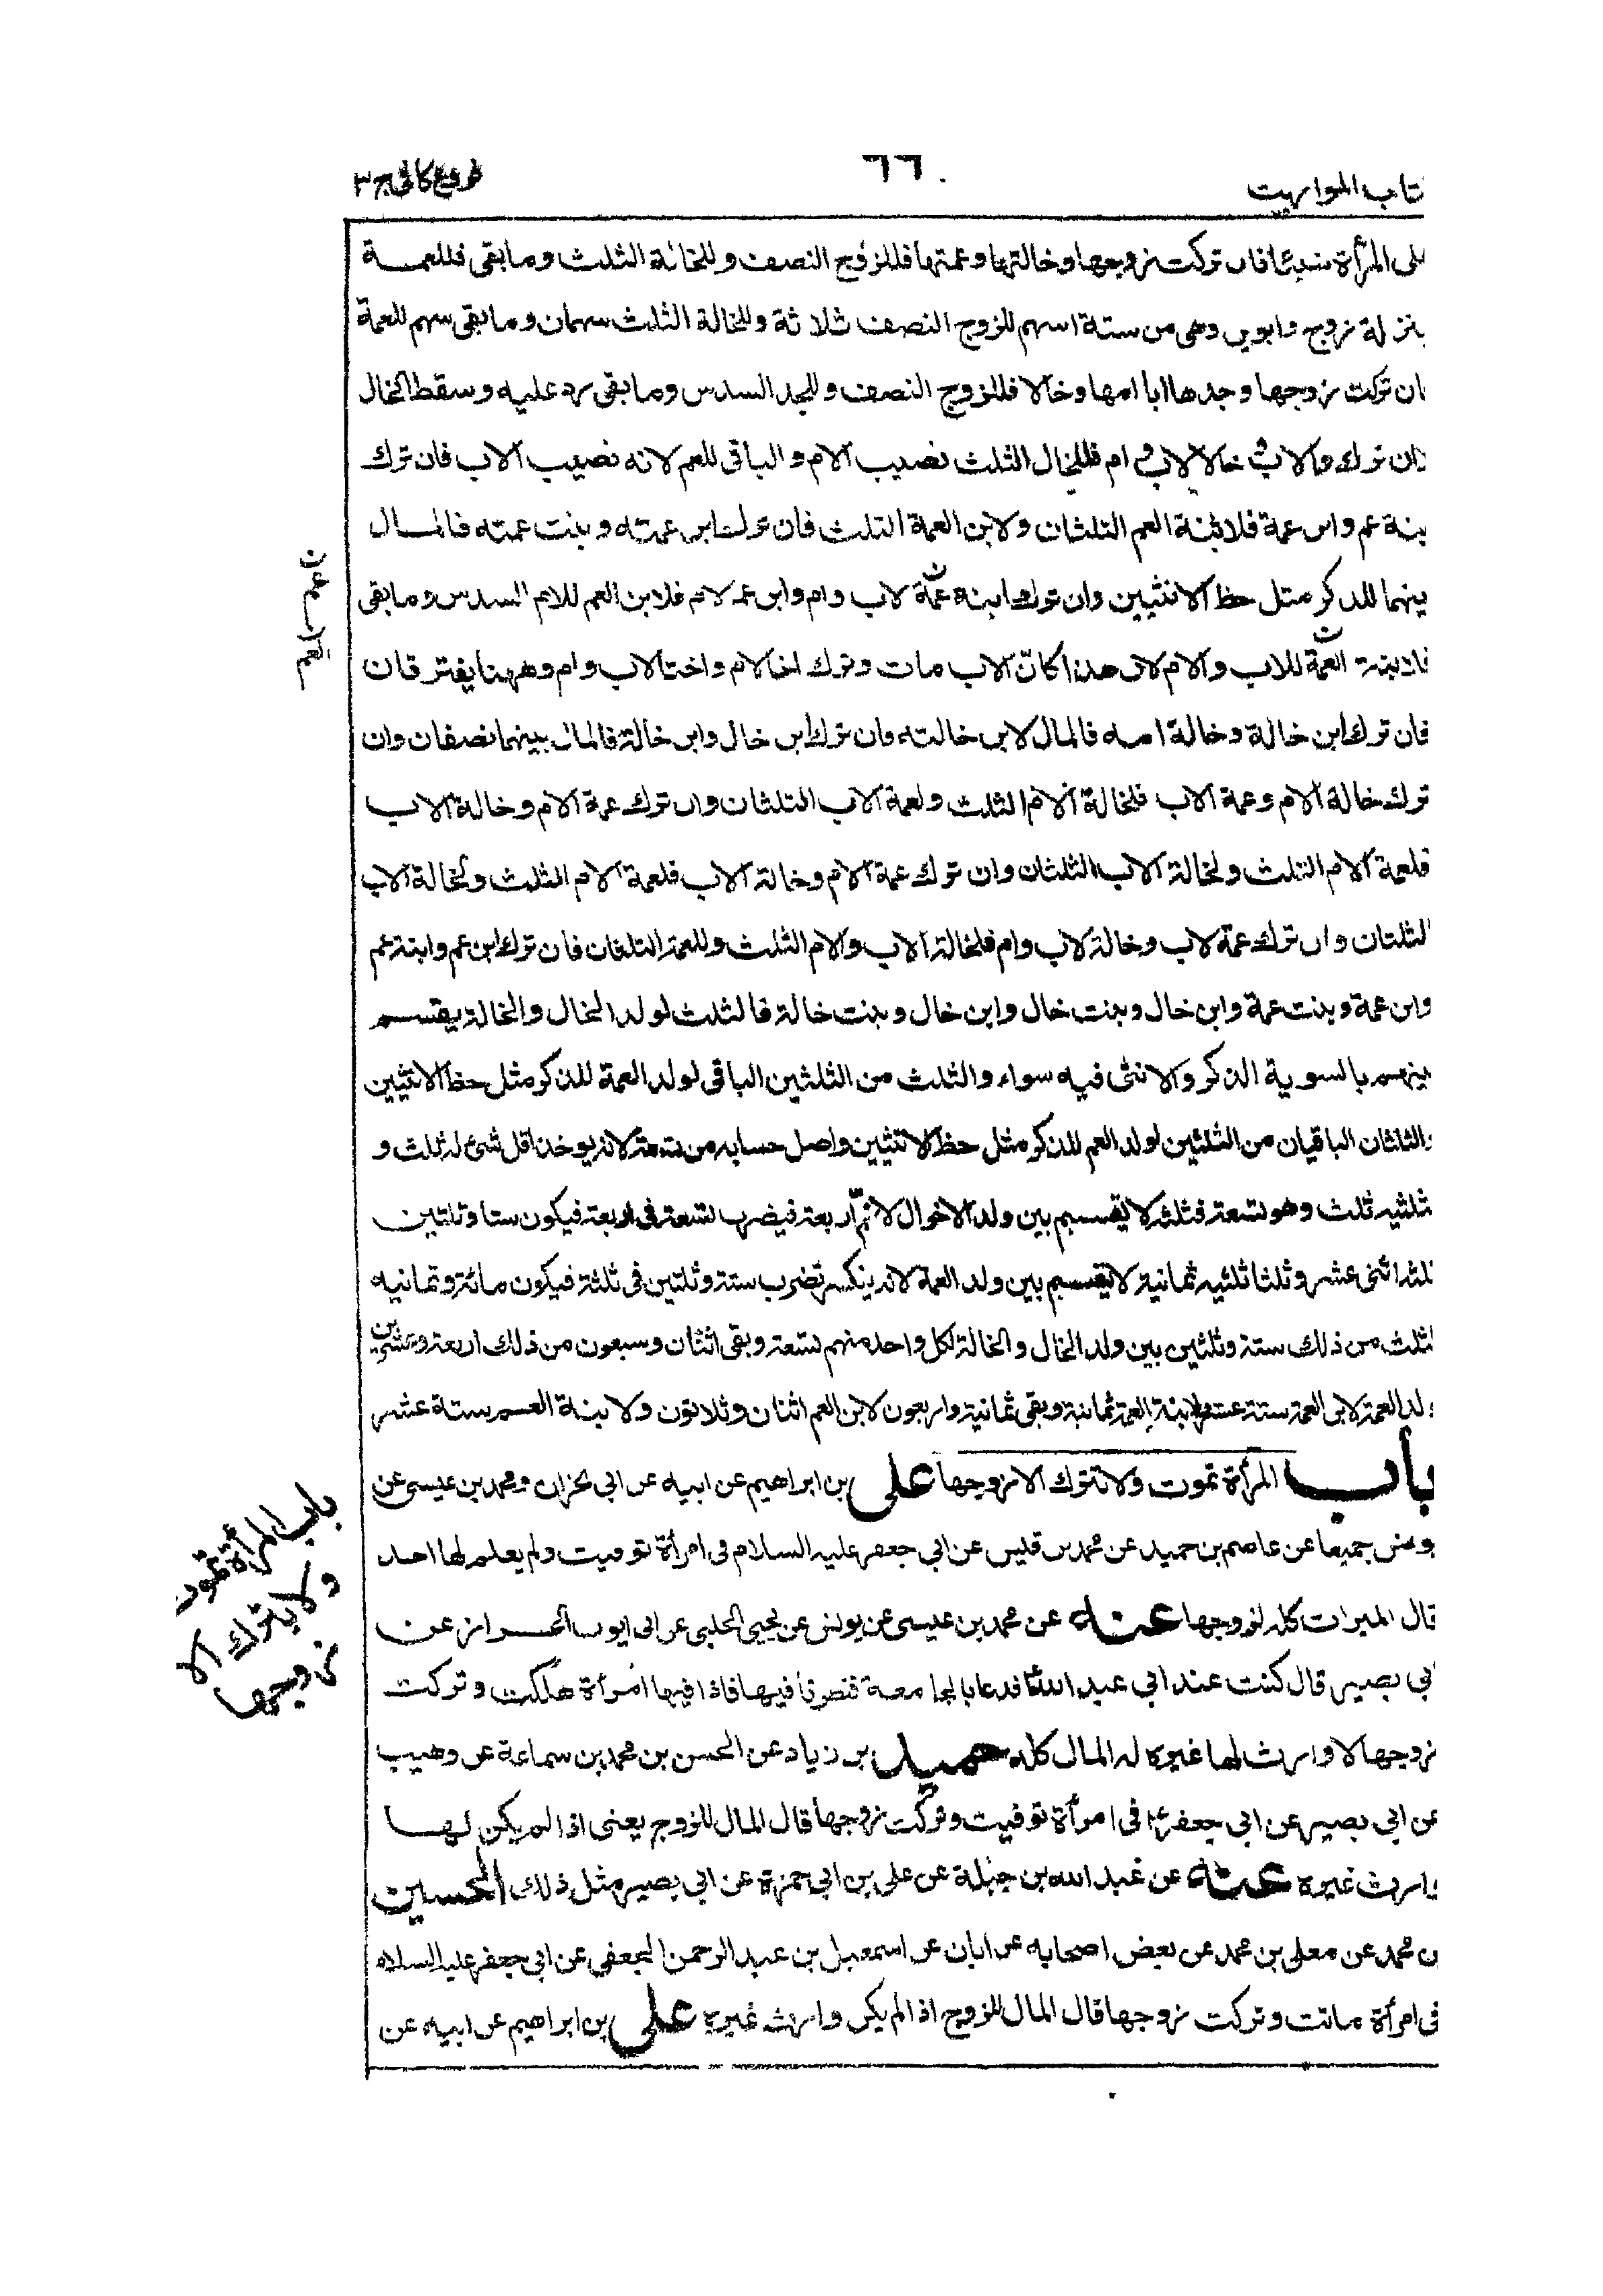 تاب المواريث
٦٦
فروع كافى ج٣
على المرأة شيئا فان تركت زوجها وخالتها وعمتها فللزوج النصف وللخالة الثلث وما بقى فللعمة
بمنزلة زوج وابوين وهى من ستة اسهم للزوج النصف ثلاثة وللخالة الثلث سهمان وما بقى سهم للعمة
فان تركت زوجها وجدها ابا امها وخالا فللزوج النصف وللجد السدس وما بقى رد عليه وسقط الخال
خالا لاب و ام فللخال الثلث نصيب الام و الباقى للعم لانه نصيب الاب فان ترك
بنة عم وابن عمة فلابنة العم الثلثان ولابن العمة الثلث فان ترك ابن عمته وبنت عمته فالمال
بينهما للذكر مثل حظ الانثيين وان ترك ابنة عمة لاب وام وابن عم لام فلابن العم للام السدس وما بقى
فلابنة العمة للاب والام لان هذا كان الاب مات وترك اخا لام واختا لاب وام وههنا يفترقان
فان ترك ابن خالة وخالة امه فالمال لابن خالته وان ترك ابن خال وابن خالة فالمال بينهما نصفان وان
ترك خالة الام وعمة الاب فلخالة الام الثلث ولعمة الاب الثلثان وان ترك عمة الام وخالة الاب
فلعمة الام الثلث ولخالة الاب الثلثان وان ترك عمة الام وخالة الاب فلعمة الام الثلث ولخالة الاب
لثلثان وان ترك عمة لاب وخالة لاب وام فلخالة الاب والام الثلث وللعمة الثلثان فان ترك ابن عم وابنة عم
وابن عمة وبنت عمة وابن خال وبنت خال وابن خال وبنت خالة فالثلث لولد الخال والخالة يقسم
بينهم بالسوية الذكر والانثى فيه سواء والثلث من الثلثين الباقى لولد العمة للذكر مثل حظ الانثيين
والثلثان الباقيان من الثلثين لولد العم للذكر مثل حظ الانثيين واصل حسابه من تسعة لانه يوخذ اقل شئ له ثلث و
ثلثيه ثلث وهو تسعة فثلثه لا يقسم بين ولد الاخوال لانهم اربعة فيضرب تسعة فى اربعة فيكون ستا وثلثين
ثلثه اثنى عشر وثلثا ثلثيه ثمانية لا يقسم بين ولد العمة لانه ينكسر تضرب ستة وثلثين فى ثلثة فيكون مائة وثمانيه
لثلث من ذلك ستة وثلثين بين ولد الخال والخالة لكل واحد منهم تسعة وبقى اثنان وسبعون من ذلك اربعة وعشرين
ولد العمة لابن العمة ستة عشر ولابنة العمة ثمانية وبقى ثمانية واربعون لابن العم اثنان وثلاثون ولابنة العم ستة عشر
باب المرأة تموت ولا تترك الا زوجها على بن ابراهيم عن ابيه عن ابى نجران ومحمد بن عيسى عن
يونس جميعا عن عاصم بن حميد عن محمد بن قيس عن ابي جعفر عليه السلام فى امرأة توفيت ولم يعلم لها احد
قال الميراث كله لزوجها عنه عن محمد بن عيسى عن يونس عن يحيى الحلبى عن ابى ايوب الخراز عن
ابى بصير قال كنت عند ابى عبد الله ع فدعا بالجامعة فنظرنا فيها فاذا فيها امرأة هلكت وتركت
زوجها لا وارث لها غيره له المال كله حميد بن زياد عن الحسن بن محمد بن سماعة عن وهيب
عن ابى بصير عن ابى جعفر ع فى امرأة توفيت وتركت زوجها قال المال للزوج يعنى اذا لم يكن لها
وارث غيره عنه عن عبد الله بن جبلة عن على بن ابى حمزة عن ابى بصير مثل ذلك الحسين
بن محمد عن معلى بن محمد عن بعض اصحابه عن ابان عن اسمعيل بن عبد الرحمن الجعفى عن ابى جعفر عليه السلام
فى امرأة ماتت وتركت زوجها قال المال للزوج اذا لم يكن وارث غيره على بن ابراهيم عن ابيه عن
باب المرأة تموت
ولا يترك الا
زوجها